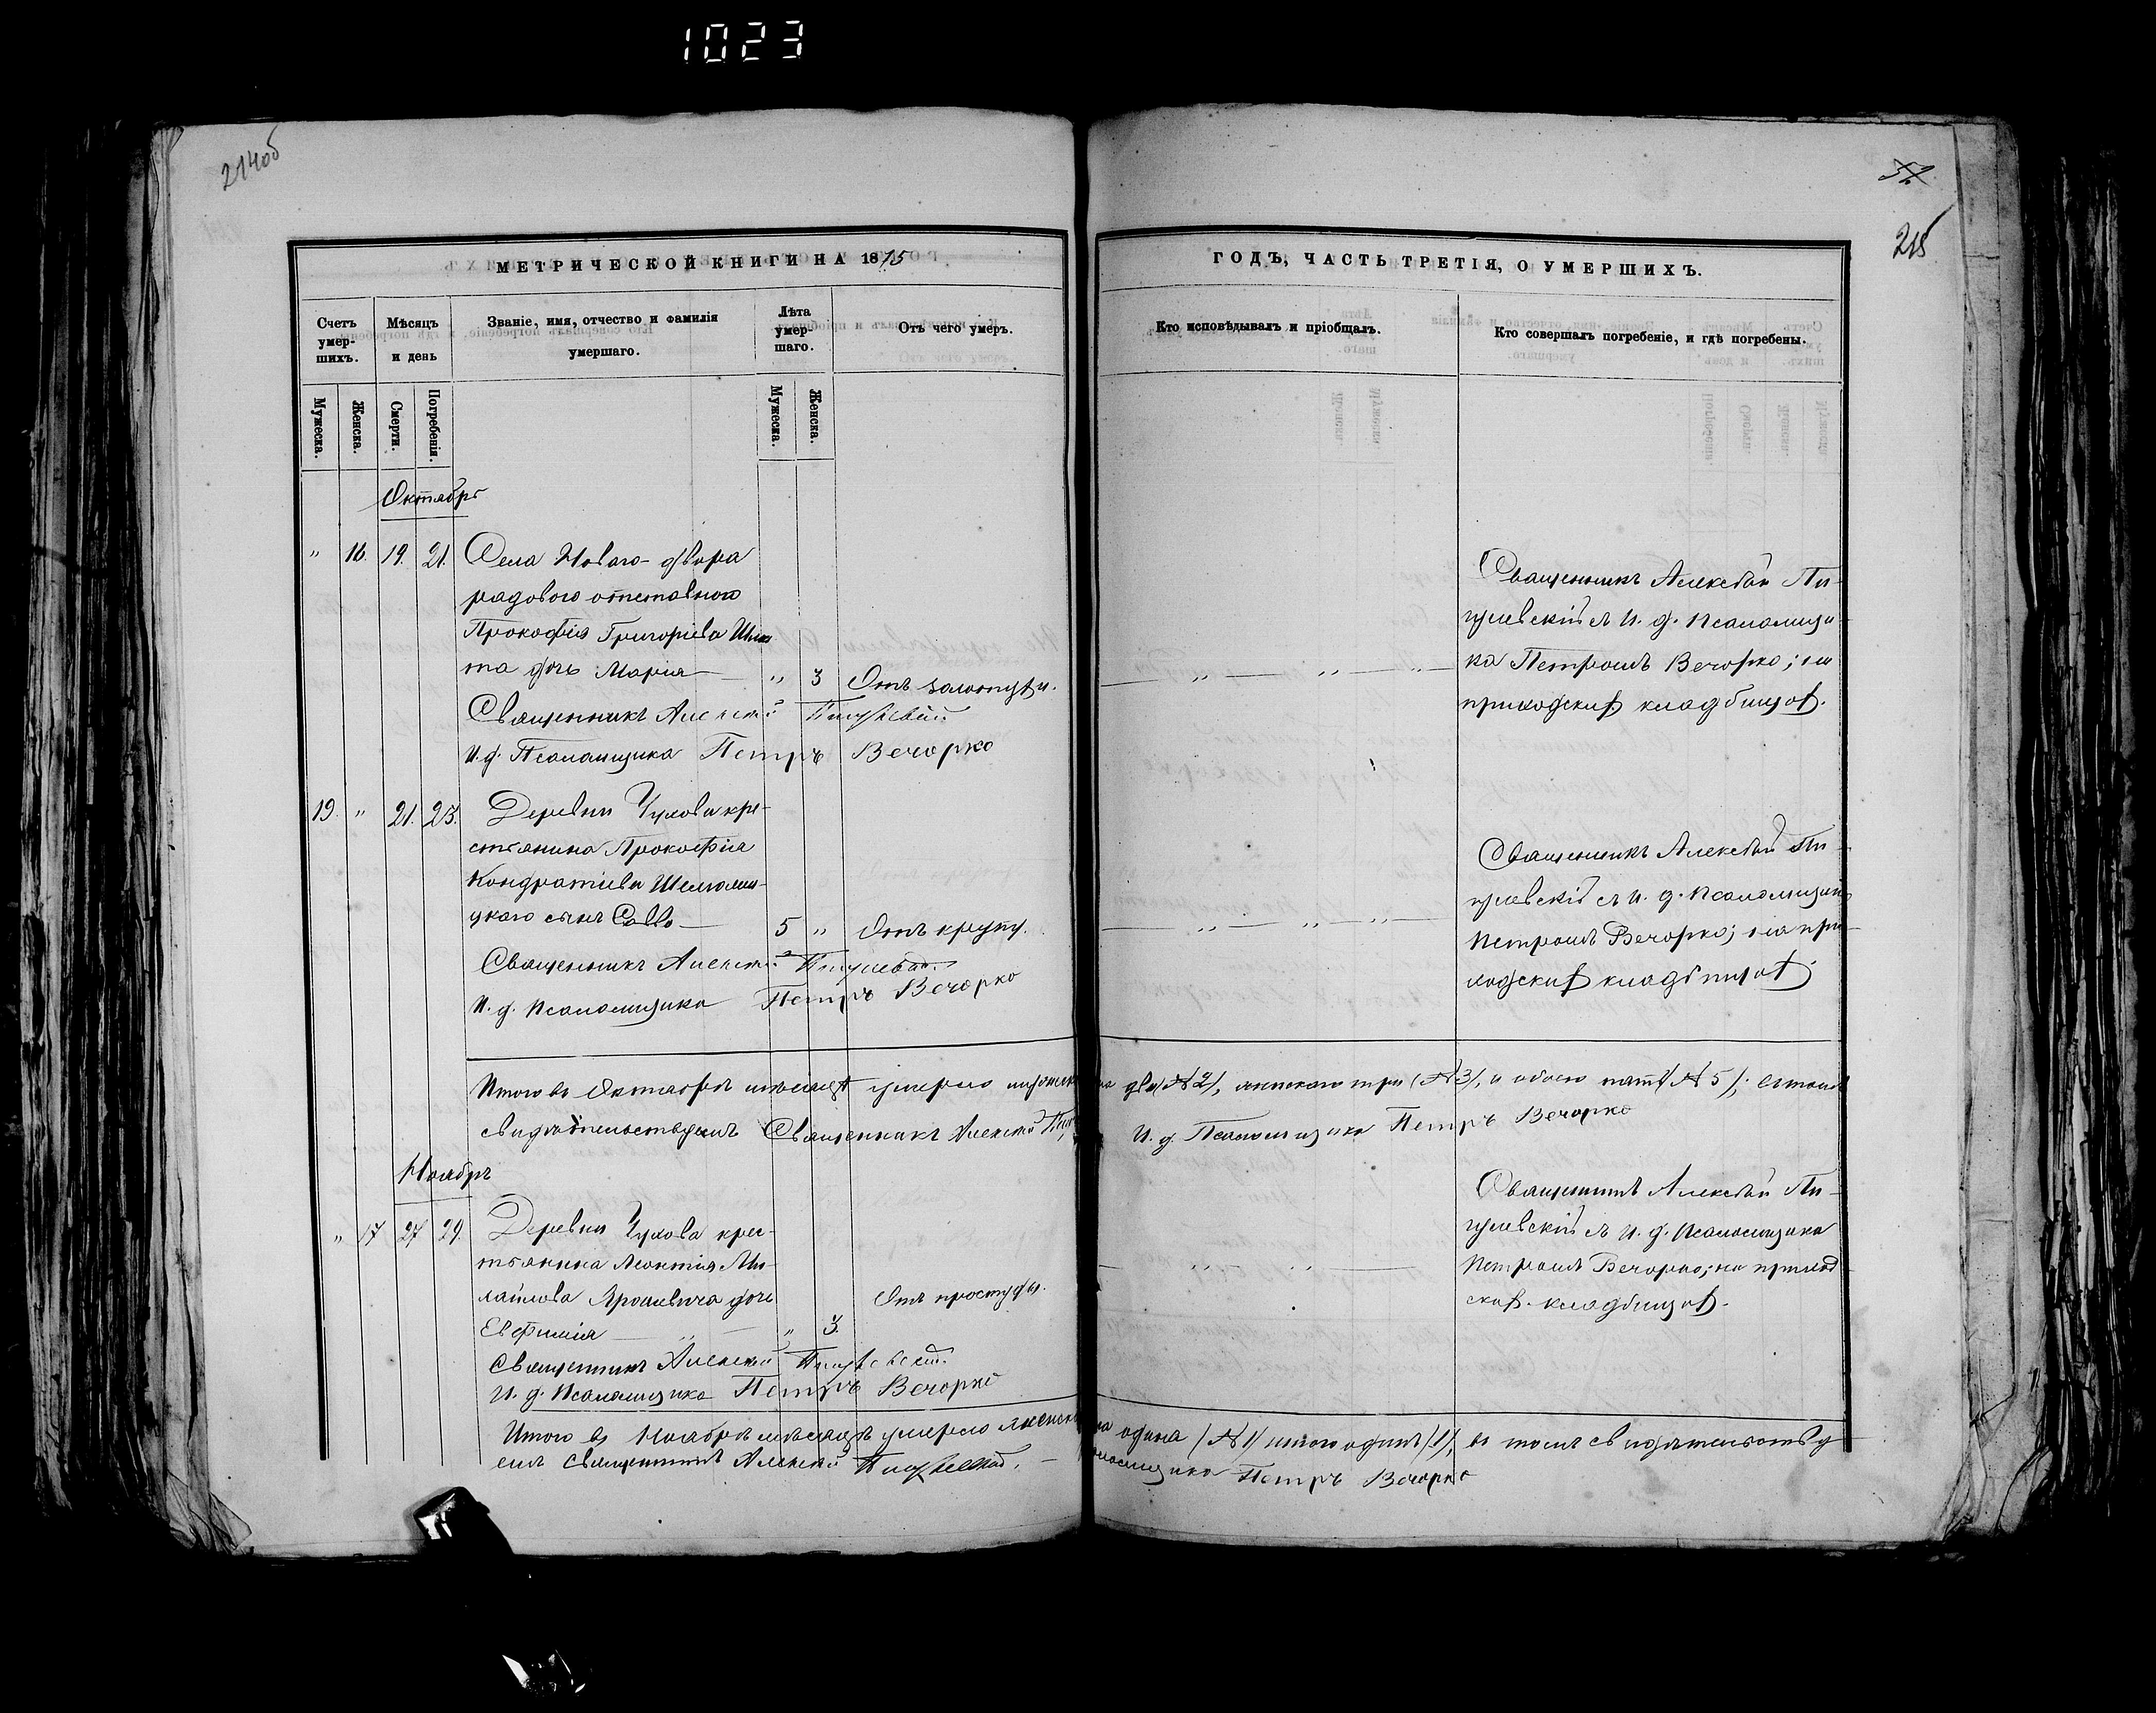 1023
214об
52
215
МЕТРИЧЕСКОЙ КНИГИ НА 1875
ГОДЪ, ЧАСТЬ ТРЕТІЯ, О УМЕРШИХЪ.
Счетъ умер-
шихъ.
Мѣсяцъ
и день
Званіе, имя, отчество и фамилія
умершаго.
Лѣта
умер-
шаго.
Отъ чего умеръ.
Кто исповѣдывалъ и пріобщалъ.
Кто совершалъ погребеніе, и гдѣ погребены.
Мужеска.
Женска.
Смерти.
Погребенія.
Мужеска.
Женска.
Октябрь
" 16. 19. 21. Села Новаго-двора
рядового отставного
Прокофія Григоріева
та дочь Марія — " 3 Отъ золотухи.
Священникъ Алексѣй
И. д. Псаломщика Петръ Вечорко
Священникъ Алексѣй Пи-
гулевскій съ И. д. Псаломщи-
ка Петромъ Вечорко; на
приходскомъ кладбищѣ.
19. " 21. 23. Деревни Чухова кре-
стьянина Прокофія
Кондратіева
цкаго сынъ Савва — 5 " Отъ крупу.
Священникъ Алексѣй
И. д. Псаломщика Петръ Вечорко
Священникъ Алексѣй Пи-
гулевскій съ И. д. Псаломщикомъ
Петромъ Вечорко; на при-
ходскомъ кладбищѣ.
Итого въ Октябрѣ мѣсяцѣ умерло мужеска два (№ 2), женскаго три (№ 3), а обоего пять (№ 5); въ томъ
свидѣтельствуемъ Священникъ Алексѣй И. д. Псаломщика Петръ Вечорко
Ноябрь
" 17 27 29. Деревни Чухова крес-
тьянина Леонтія Ми-
хайлова Ярошевича дочь
Евфимія — " — " 3. Отъ простуды.
Священникъ Алексѣй Пигулевскій.
И. д. Псаломщика Петръ Вечорко
Священникъ Алексѣй Пи-
гулевскій съ И. д. Псаломщика
Петромъ Вечорко; на приход-
скомъ кладбищѣ.
Итого въ Ноябрѣ мѣсяцѣ умерло женска одна (№ 1) итого одинъ (1), въ томъ свидѣтельству
емъ Священникъ Алексѣй Пигулевскій. — Псаломщика Петръ Вечорко